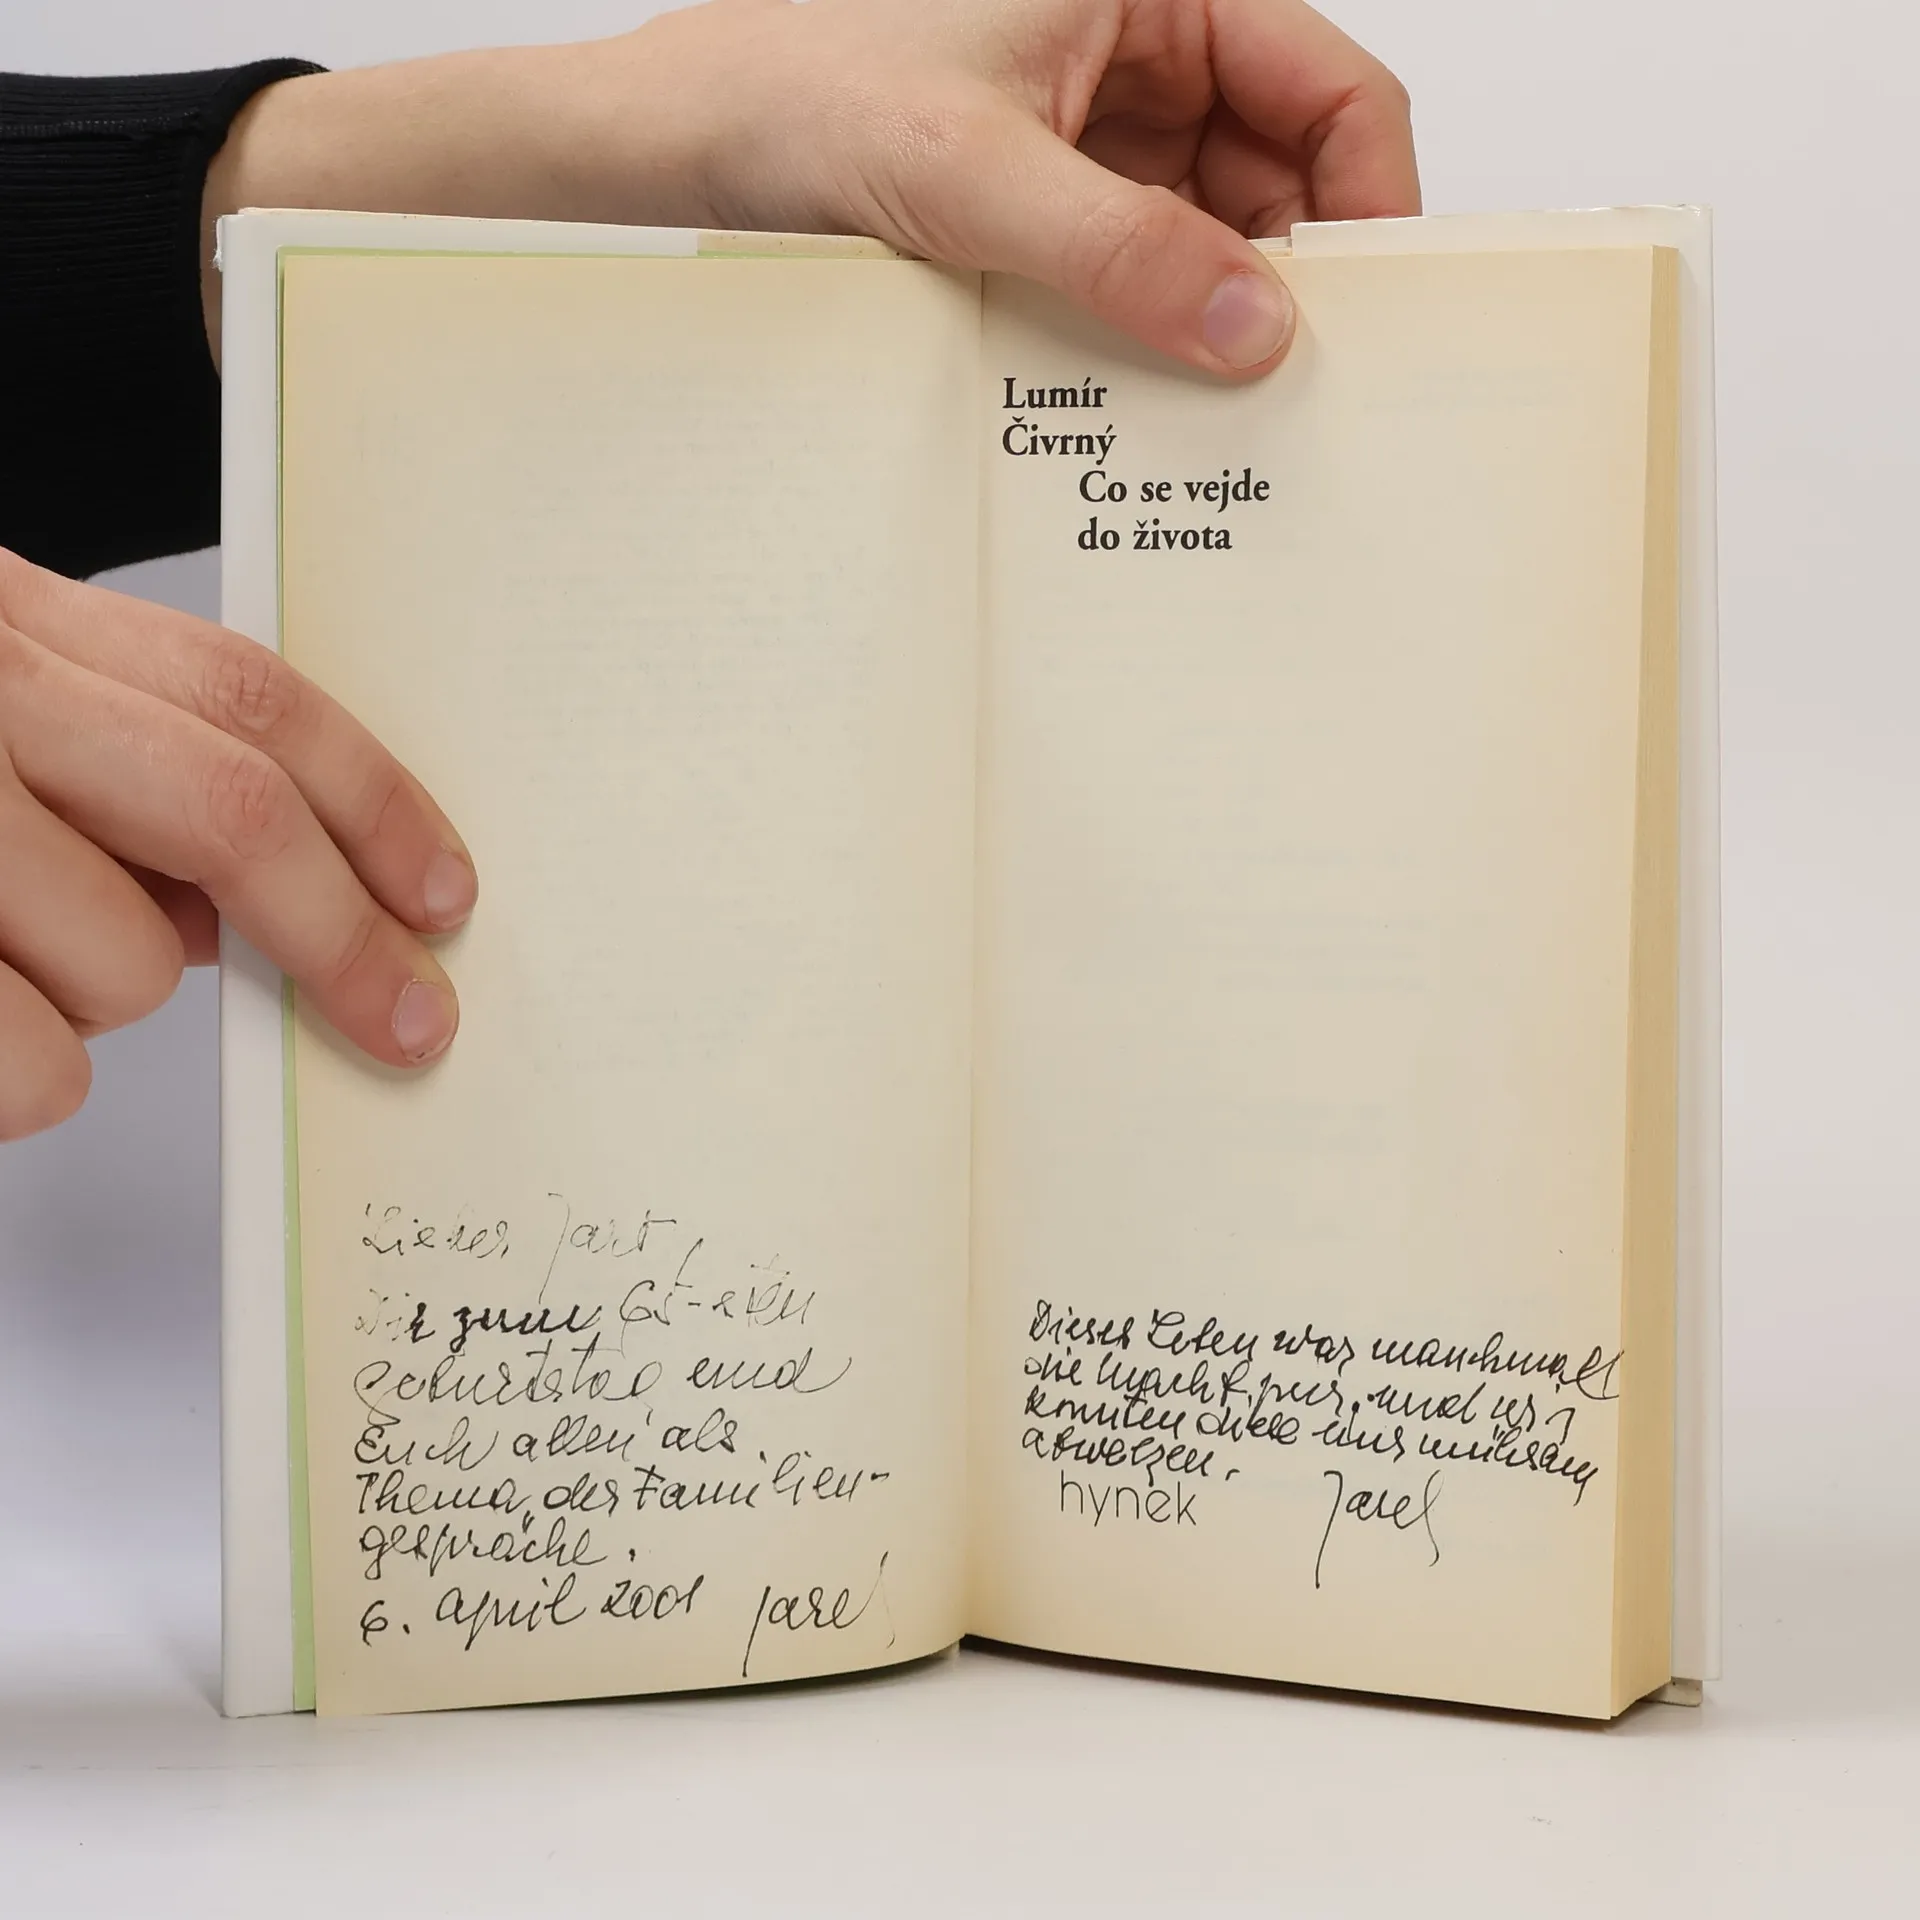 Lieber
Dir zum 65-sten
Geburtstag und
Euch allen als
Thema der Familien-
gespräche.
6. April 2001 Jarel
Lumír
Čivrný
Co se vejde
do života
Dieses Leben war manchmal
die und wir
konnten diese nur mühsam
hynek Jarel